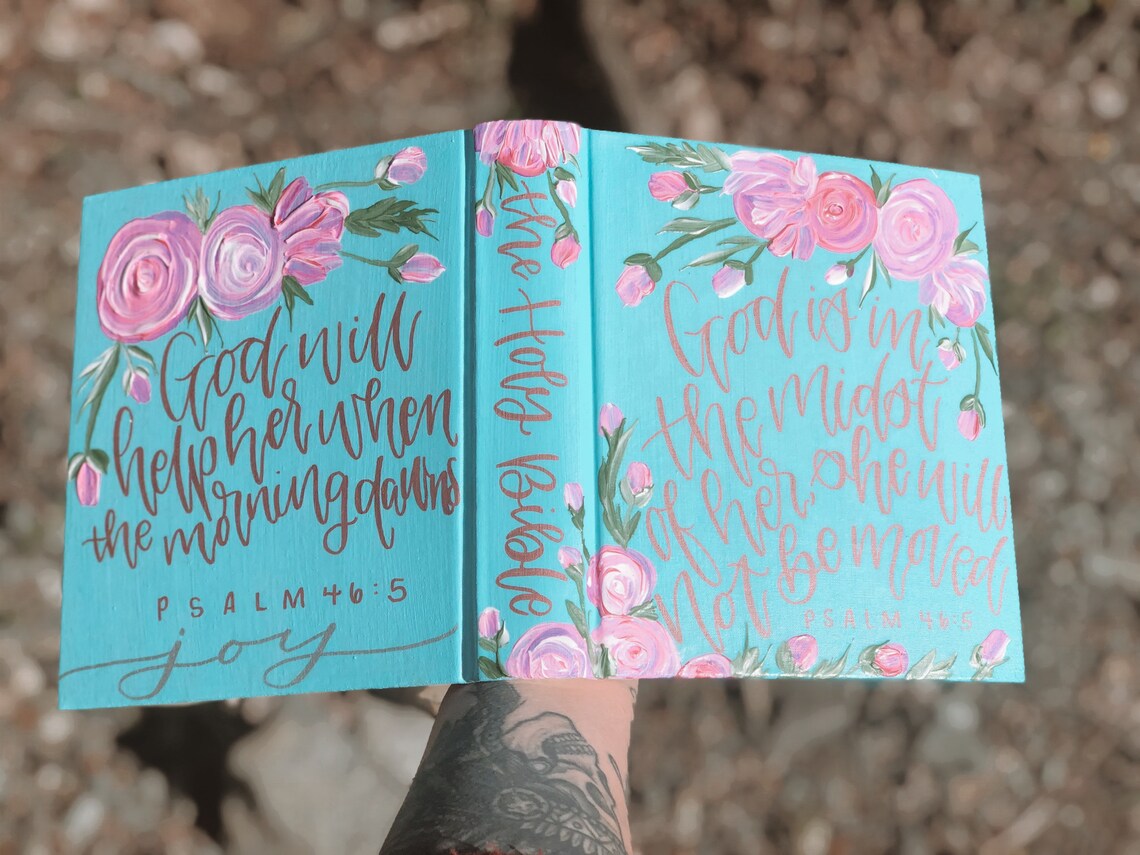 God will
help her when
the morning dawns
PSALM 46:5
joy
the Holy Bible
God is in
the midst
of her, she will
not be moved
PSALM 46:5